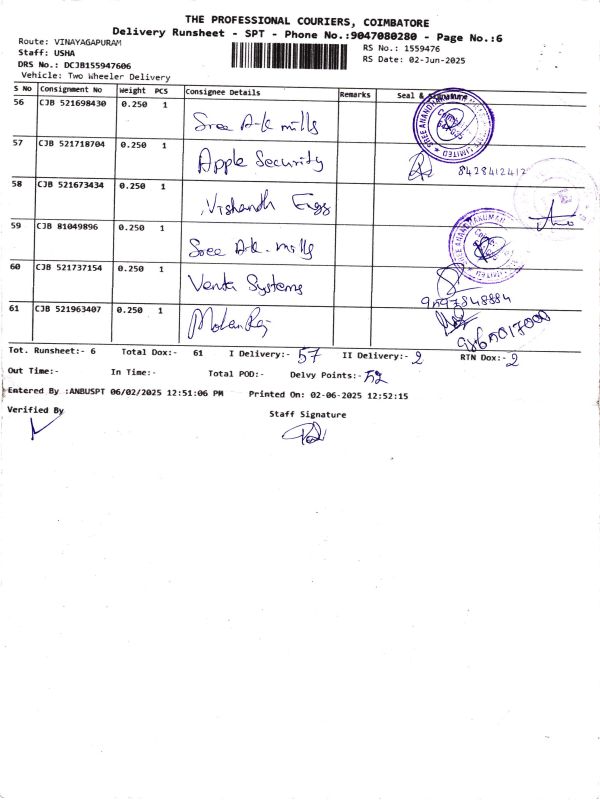 THE PROFESSIONAL COURIERS, COIMBATORE
Delivery Runsheet - SPT - Phone No.:9047080280 - Page No.:6
Route: VINAYAGAPURAM
RS No.: 1559476
Staff: USHA
RS Date: 02-Jun-2025
DRS No.: DCJB155947606
Vehicle: Two Wheeler Delivery
S No Consignment No Weight PCS Consignee Details Remarks Seal &
56 CJB 521698430 0.250 1 Sree A-k mills
57 CJB 521718704 0.250 1 Apple Security 8428412412
58 CJB 521673434 0.250 1 Vishandh Engg
59 CJB 81049896 0.250 1 Sree A-k. mills
60 CJB 521737154 0.250 1 Venta Systems
61 CJB 521963407 0.250 1 MohanRaj
Tot. Runsheet:- 6 Total Dox:- 61 I Delivery:- 57 II Delivery:- 2 RTN Dox:- 2
Out Time:- In Time:- Total POD:- Delvy Points:- 52
Entered By :ANBUSPT 06/02/2025 12:51:06 PM Printed On: 02-06-2025 12:52:15
Verified By Staff Signature